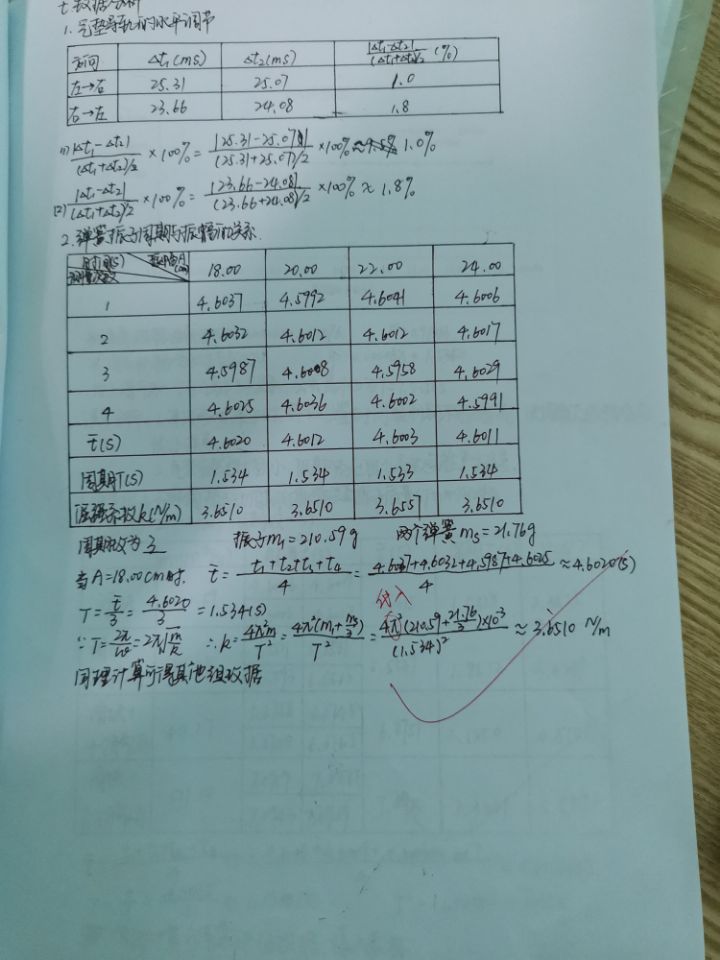 七.数据分析
1.气垫导轨的水平调节
方向 Δt₁(ms) Δt₂(ms) |Δt₁-Δt₂|/(Δt₁+Δt₂)/2 (%)
左→右 25.31 25.07 1.0
右→左 23.66 24.08 1.8
(1) |Δt₁-Δt₂|/(Δt₁+Δt₂)/2 ×100% = |25.31-25.07|/(25.31+25.07)/2 ×100% ≈ 1.0%
(2) |Δt₁-Δt₂|/(Δt₁+Δt₂)/2 ×100% = |23.66-24.08|/(23.66+24.08)/2 ×100% ≈ 1.8%
2.弹簧振子周期与振幅的关系.
时间(s) 振幅A(cm) 测量次数 18.00 20.00 22.00 24.00
1 4.6037 4.5992 4.6041 4.6006
2 4.6032 4.6012 4.6012 4.6017
3 4.5987 4.6008 4.5958 4.6029
4 4.6025 4.6036 4.6002 4.5991
t̄(s) 4.6020 4.6012 4.6003 4.6011
周期T(s) 1.534 1.534 1.533 1.534
倔强系数k(N/m) 3.6510 3.6510 3.6557 3.6510
周期数为 3 振子m₁=210.59g 两个弹簧m₃=21.76g
当A=18.00cm时. t̄ = (t₁+t₂+t₃+t₄)/4 = (4.6037+4.6032+4.5987+4.6025)/4 ≈ 4.6020(s)
代入
T = t̄/3 = 4.6020/3 = 1.534(s)
∵T=2π/ω=2π√(m/k) ∴k=4π²m/T² = 4π²(m₁+m₃/3)/T² = 4π²(210.59+21.76/3)×10⁻³/(1.534)² ≈ 3.6510 N/m
同理计算可得其他组数据